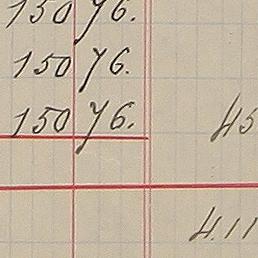 150 76.
150 76.
150 76. 45
4.11